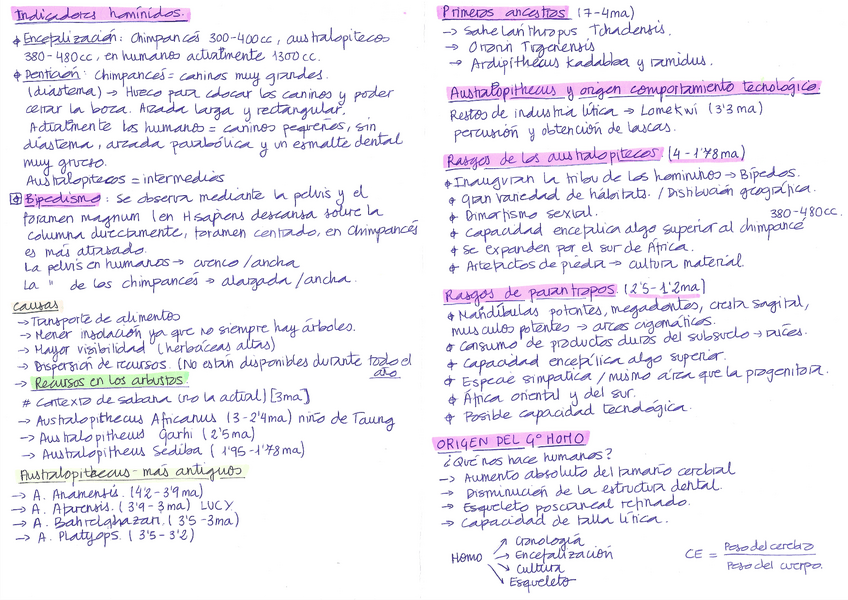 Indicadores homínidos.
Encefalización: Chimpancés 300-400cc, australopitecos
380-480cc, en humanos actualmente 1300cc.
Dentición: Chimpancés = caninos muy grandes.
(diastema) → Hueco para colocar los caninos y poder
cerrar la boca. Arcada larga y rectangular.
Actualmente los humanos = caninos pequeños, sin
diastema, arcada parabólica y un esmalte dental
muy grueso.
Australopitecos = intermedios
Bipedismo: Se observa mediante la pelvis y el
foramen magnum (en H sapiens descansa sobre la
columna directamente, foramen centrado, en Chimpancés
es más atrasado.
La pelvis en humanos → cuenco/ancha
La " de los chimpancés → alargada/ancha.
Causas
→ Transporte de alimentos
→ Menor insolación ya que no siempre hay árboles.
→ Mayor visibilidad (herbáceas altas)
→ Dispersión de recursos. (No están disponibles durante todo el
año
→ Recursos en los arbustos
# Contexto de sabana (no la actual) [3ma]
→ Australopithecus Africanus (3-2'4ma) niño de Taung
→ Australopitheus Garhi (2'5ma)
→ Australopitheus Sediba (1'95-1'78ma)
Australopitecus más antiguos
→ A. Anamensis. (4'2-3'9ma)
→ A. Afarensis. (3'9-3ma) LUCY
→ A. Bahrelghazari. (3'5-3ma)
→ A. Platyops. (3'5-3'2)
Primeros ancestros (7-4ma)
→ Sahelanthropus Tchadensis.
→ Orrorin Tugenensis
→ Ardipithecus Kadabba y ramidus.
Australopithecus y origen comportamiento tecnológico.
Restos de industria lítica → Lomekwi (3'3ma)
percusión y obtención de lascas.
Rasgos de los australopitecos (4-1'78ma)
Inauguran la tribu de los homininos → Bípedos.
Gran variedad de hábitats. / Distribución geográfica.
Dimorfismo sexual.
380-480cc.
Capacidad encefálica algo superior al chimpancé
Se expanden por el sur de África.
Artefactos de piedra → cultura material.
Rasgos de parantropos (2'5-1'2ma)
Mandíbulas potentes, megadontes, cresta sagital,
musculos potentes → arcos cigomáticos.
Consumo de productos duros del subsuelo → raíces.
Capacidad encefálica algo superior.
Especie simpatica / mismo área que la progenitora.
África oriental y del sur.
Posible capacidad tecnológica.
ORIGEN DEL Gº HOMO
¿Qué nos hace humanos?
→ Aumento absoluto del tamaño cerebral
→ Disminución de la estructura dental.
→ Esqueleto poscraneal refinado.
→ Capacidad de talla lítica.
Homo
Cronología
→ Encefalización
Cultura
Esqueleto
CE = Peso del cerebro
Peso del cuerpo.